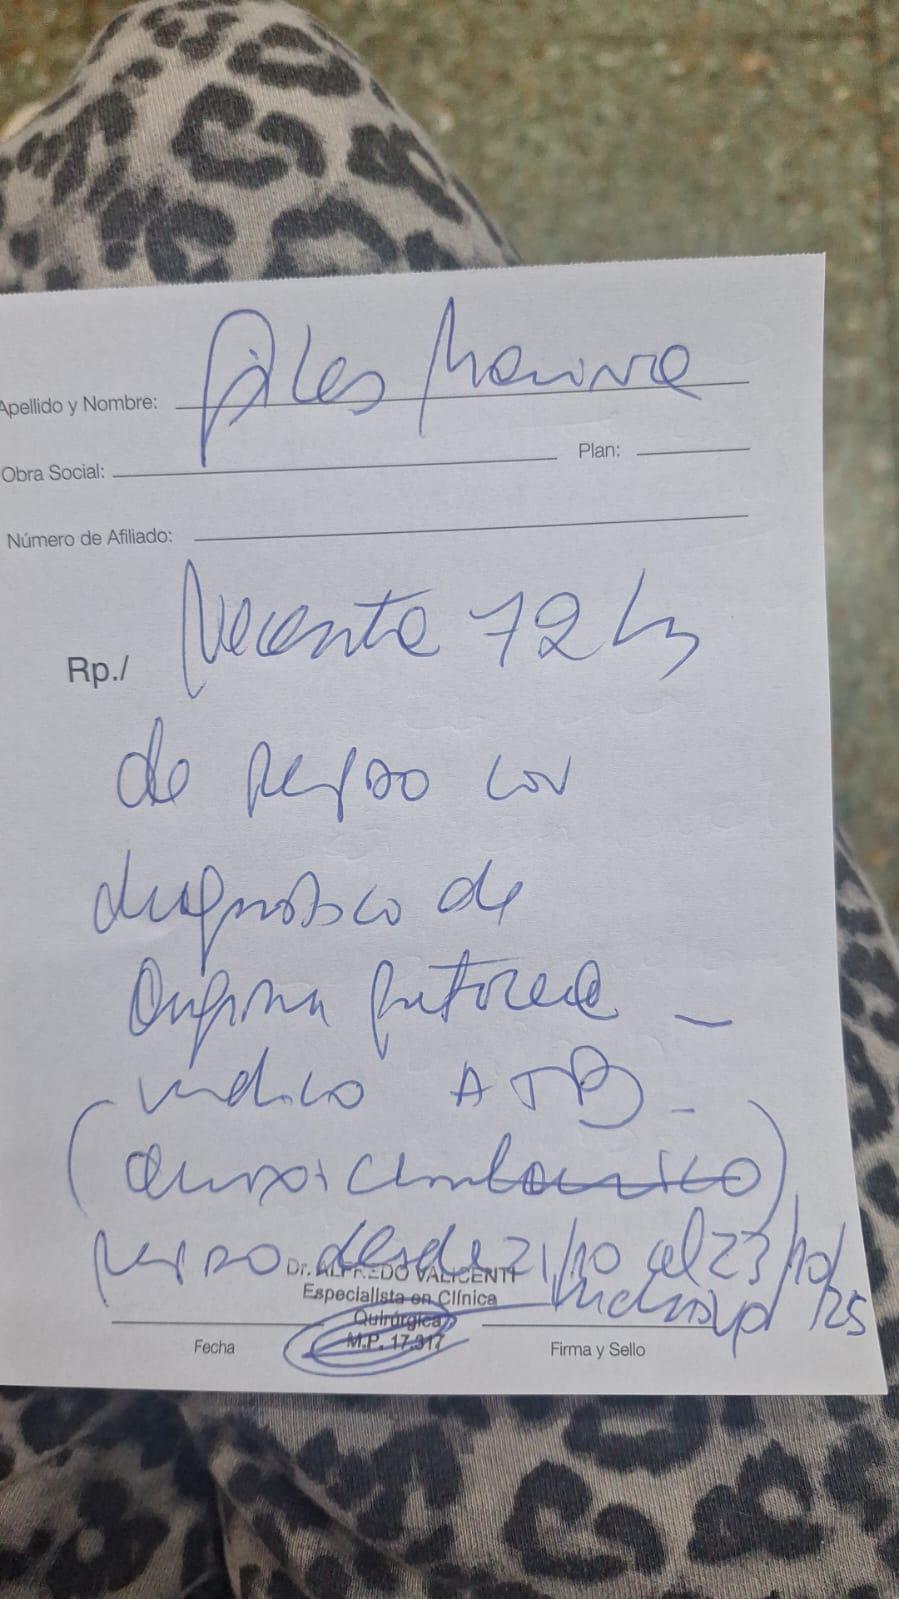 Apellido y Nombre:
Obra Social: Plan:
Número de Afiliado:
Rp./ Necesita 72 hs
de reposo con
diagnostico de
Angina
indico ATB -
(
reposo desde 21/10 al 23/10/25
inclusive
Dr. ALFREDO VALICENTI
Especialista en Clínica
Quirúrgica
M.P. 17.317
Fecha Firma y Sello